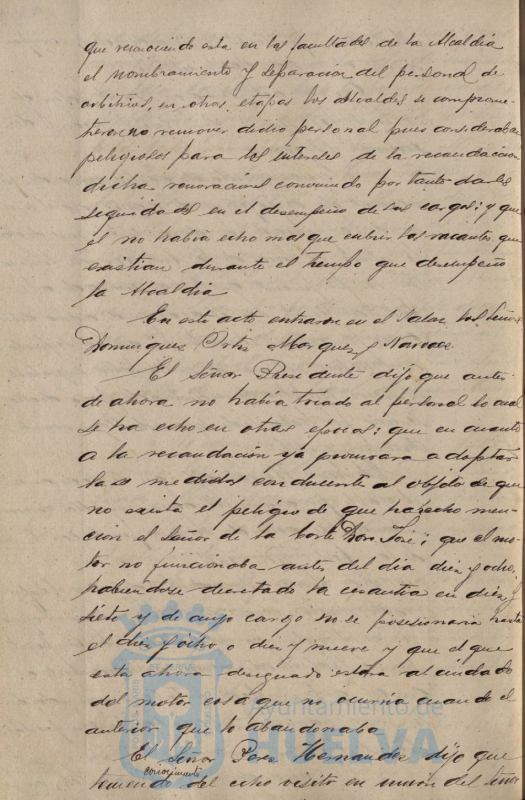 que reconociendo esta en las facultades de la Alcaldia
el nombramiento y separacion del personal de
arbitrios, en otras etapas los Alcaldes se comprome-
tieron no remover dicho personal pues consideraban
peligiosos para los intereses de la recaudacion
dicha renovacion conviniendo por tanto darles
seguridades en el desempeño de sus cargos; y que
el no habia echo mas que cubrir las vacantes que
existian durante el tiempo que desempeño
la Alcaldia
En este acto entraron en el Salon los Señores
Dominguez Ortiz Marquez y Narvaez
El Señor Presidente dijo que antes
de ahora no habia tocado al personal lo cual
se ha echo en otras epocas; que en cuanto
a la recaudación ya procurara adoptar
las medidas conducente al objeto de que
no exista el peligro de que ha echo men-
cion el Señor de la Corte Don José; que el mo-
tor no funcionaba antes del dia diez y ocho,
habiendose decretado la cesantia en diez y
siete y de cuyo cargo no se posesionaria hasta
el diez y ocho o diez y nueve y que el que
esta ahora designado estara al cuidado
del motor cosa que no ocurria cuando el
anterior que lo abandonaba
El Señor Hernandez dijo que
conocimiento
teniendo del echo visito en union del Señor
Ayuntamiento de
HUELVA